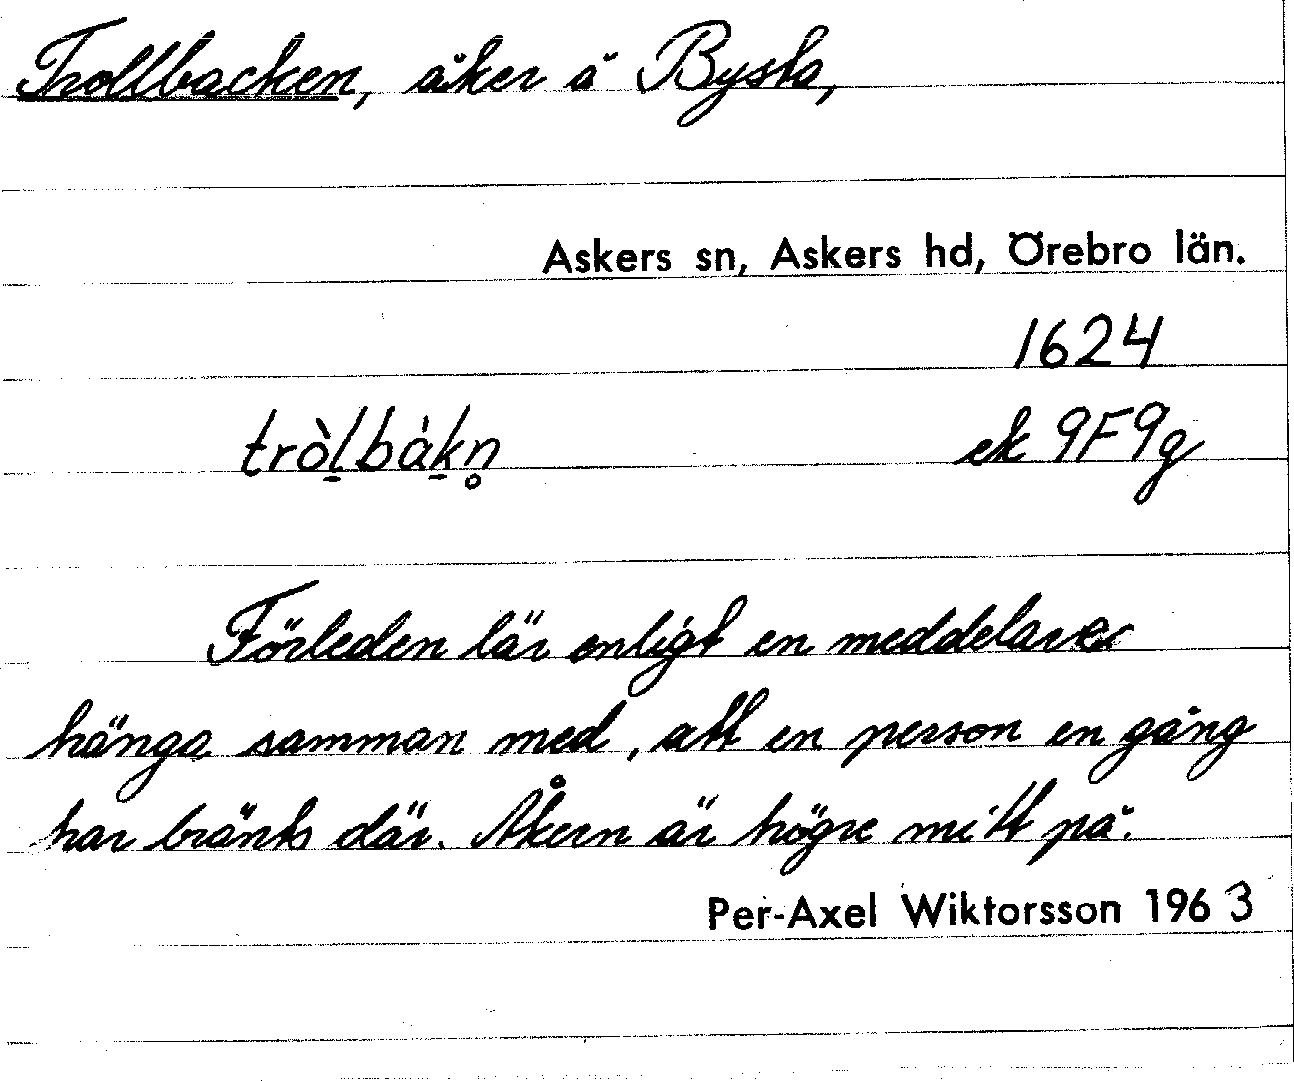 Trollbacken, åker å Bysta,
Askers sn, Askers hd, Örebro län.
1624
tròl̠bàk̠n̥ ek 9F9g
Förleden lär enligt en meddelare
hänga samman med, att en person en gång
har bränts där. Åkern är högre mitt på.
Per-Axel Wiktorsson 1963